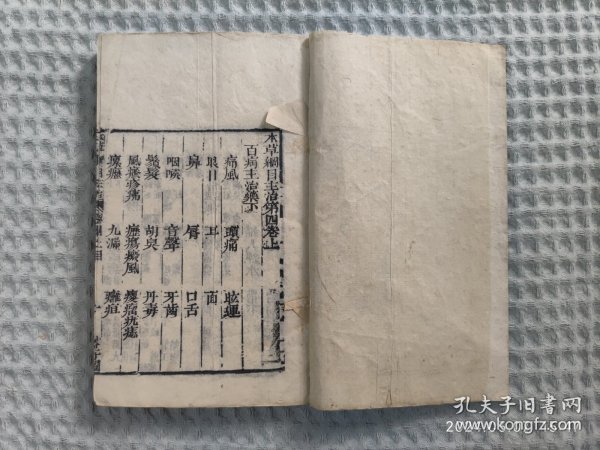 本草綱目主治第四卷上
百病主治藥下
痛風 頭痛 眩運
眼目 耳 面
鼻 唇 口舌
咽喉 音聲 牙齒
鬚髮 胡臭 丹毒
風瘙疹痱 癧瘍癜風 癭瘤疣痣
瘰癧 九漏 癰疽
孔夫子旧书网